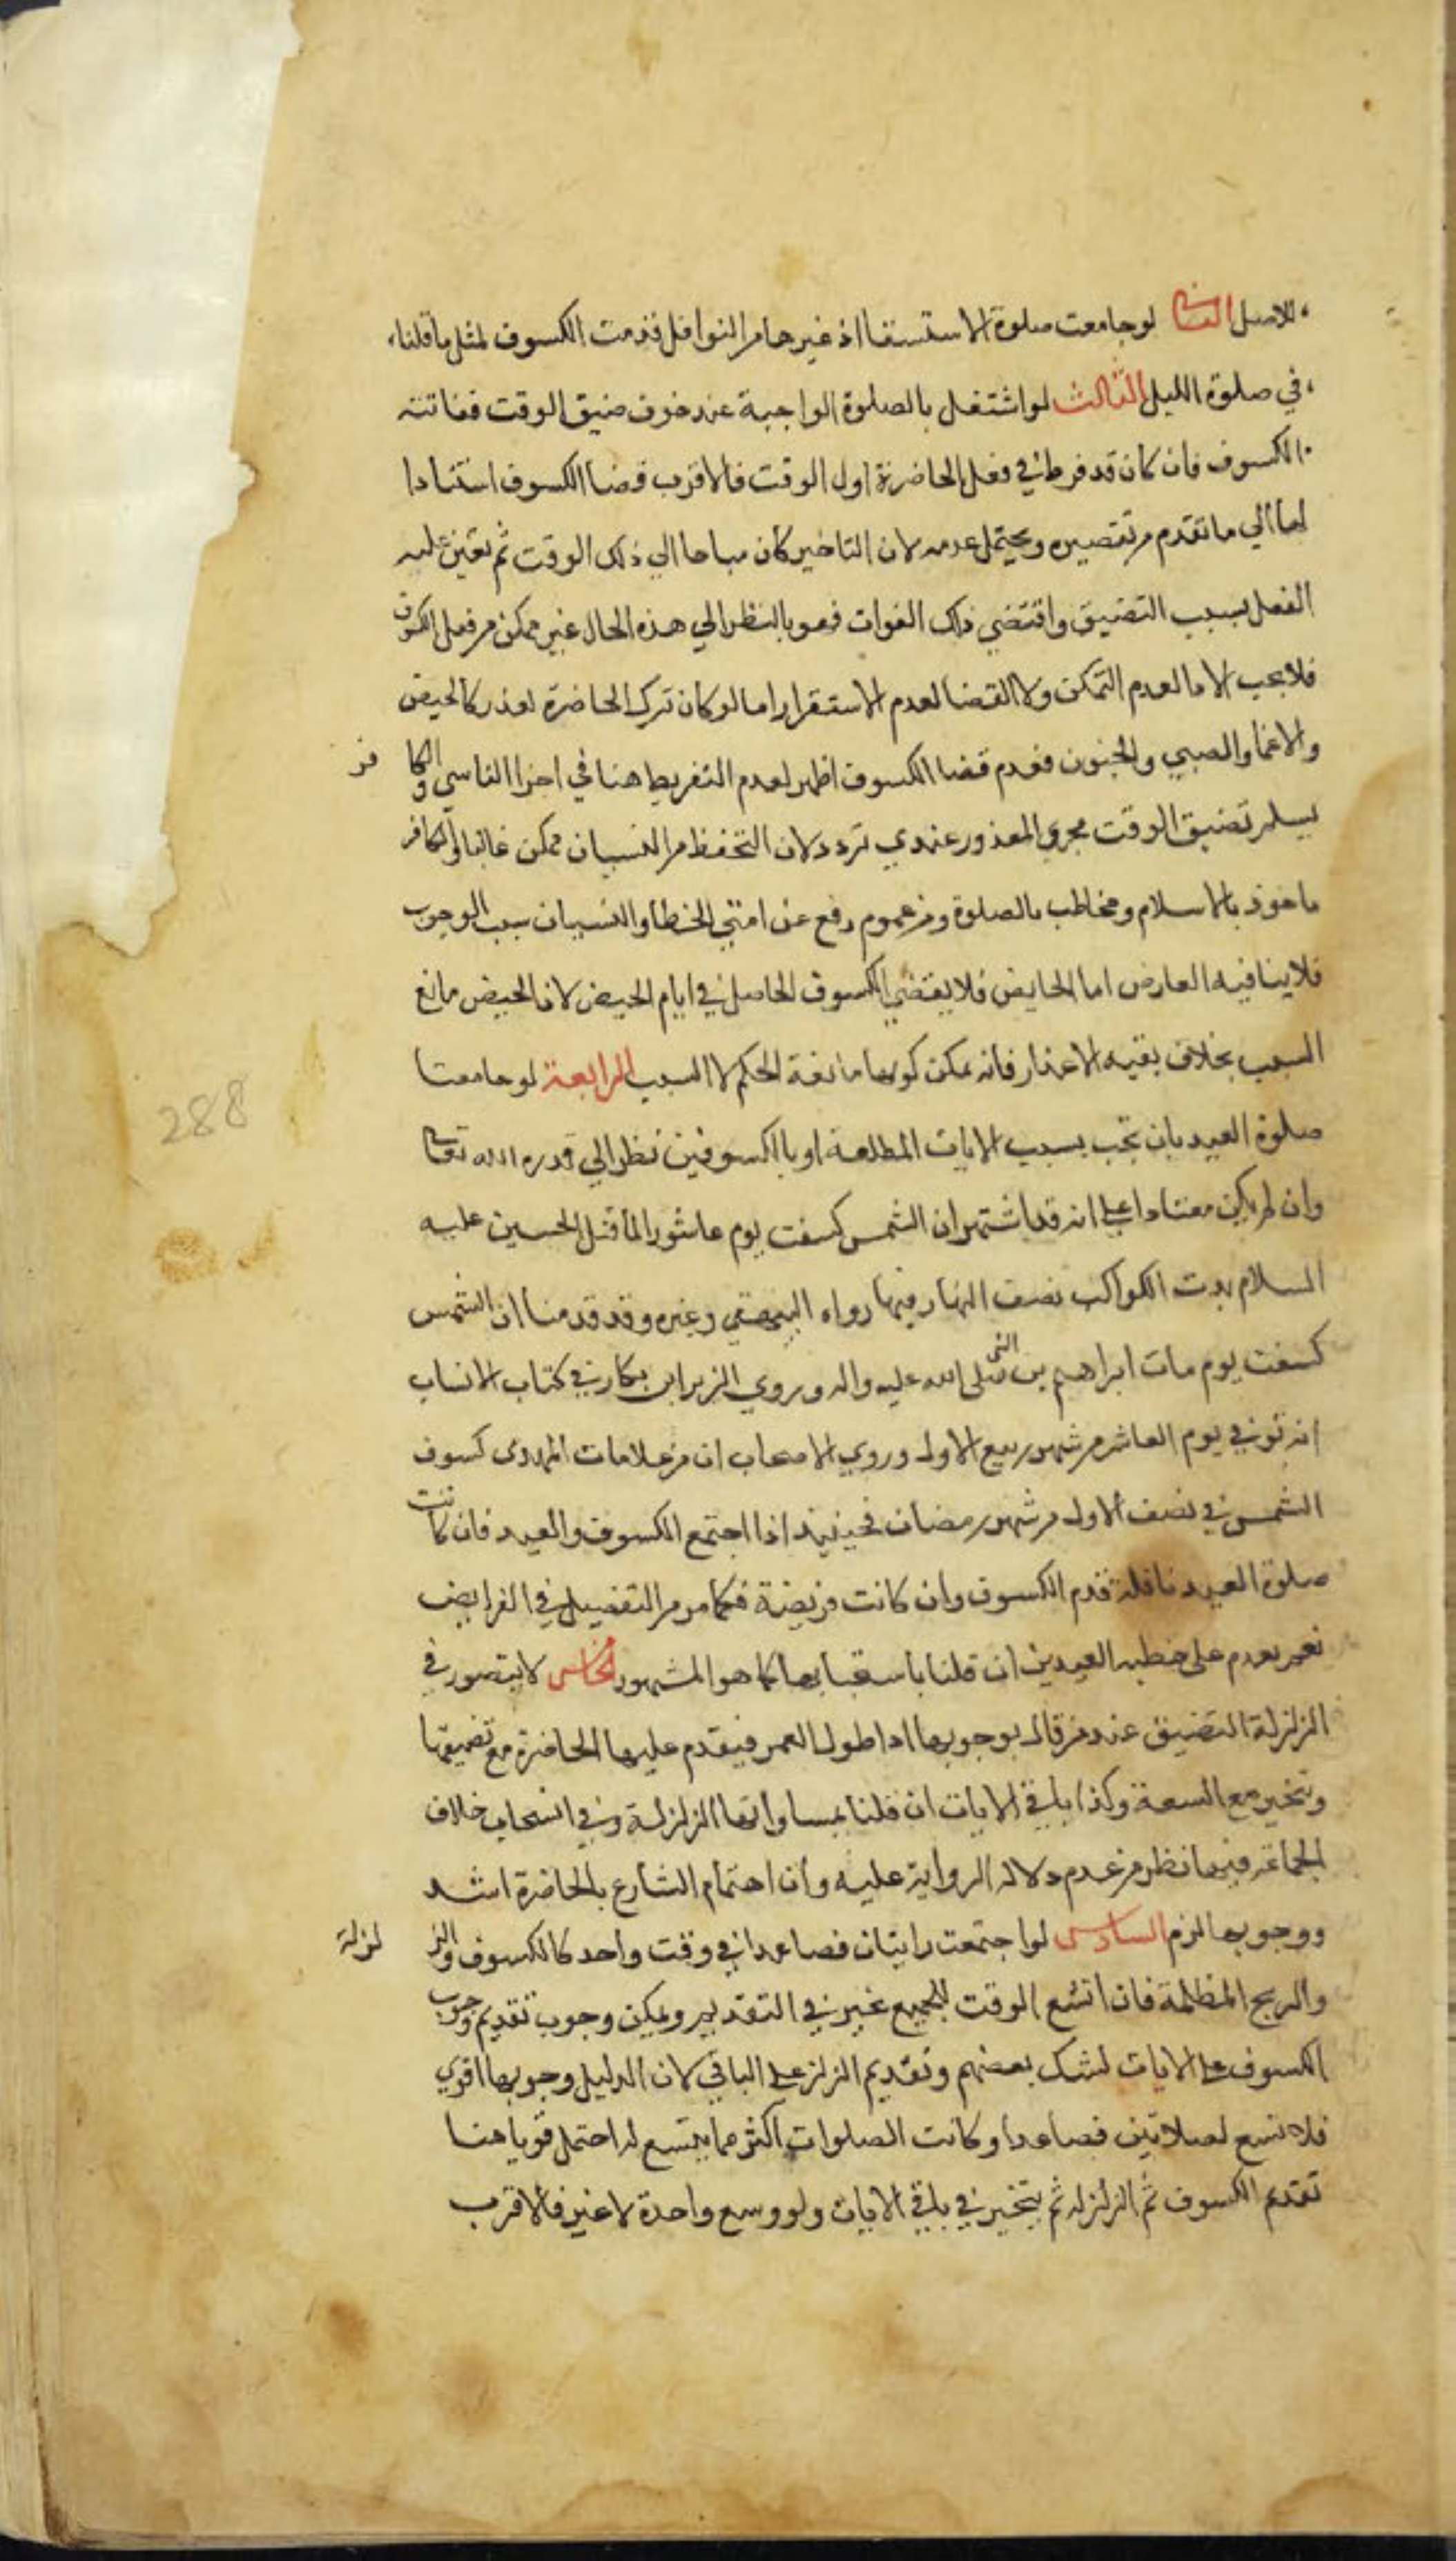 للاصل الثاني لو جامعت صلوة الاستسقا او غيرها من النوافل قدمت الكسوف لمثل ما قلنا
في صلوة الليل الثالث لو اشتغل بالصلوة الواجبة عند خوف ضيق الوقت ففاتته
الكسوف فان كان قد فرط في فعل الحاضرة اول الوقت فالاقرب قضا الكسوف استنادا
لها الي ما تقدم من تقصيره ويحتمل عدمه لان التاخير كان مباحا الي ذلك الوقت ثم تعين عليه
الفعل بسبب التضيق واقتضي ذلك الفوات فهو بالنظر الي هذه الحال غير ممكن من فعل الكسوف
فلا يجب الادا لعدم التمكن ولا القضا لعدم الاستقرار اما لو كان ترك الحاضرة لعذر كالحيض
والاغما والصبي والجنون فعدم قضا الكسوف اظهر لعدم التفريط هنا في اجرا الناسي والكافر
يسلم تضيق الوقت مجري المعذور عندي تردد لان التحفظ من النسيان ممكن غالبا والكافر
ماخوذ بالاسلام ومخاطب بالصلوة ومن عموم رفع عن امتي الخطا والنسيان سبب الوجوب
فلا ينافيه العارض اما الحايض فلا يقتضي الكسوف الحاصل في ايام الحيض لان الحيض مانع
السبب بخلاف بقيه الاعذار فانه يمكن كونها مانعة الحكم لا السبب الرابعة لو جامعت
صلوة العيد بان تجب بسبب الايات المطلعة او بالكسوفين نظرا الي قدره الله تعالى
وان لم يكن معتادا علي انه قد اشتهر ان الشمس كسفت يوم عاشورا لما قتل الحسين عليه
السلام بدت الكواكب نصف النهار فيها رواه البيهقي وغيره وقد قدمنا ان الشمس
كسفت يوم مات ابراهيم بن النبي صلى الله عليه واله وروي الزبير ابن بكار في كتاب الانساب
انه توفي يوم العاشر من شهر ربيع الاول وروي الاصحاب ان من علامات المهدى كسوف
الشمس في نصف الاول من شهر رمضان فحينيذ اذا اجتمع الكسوف والعيد فان كانت
صلوة العيد نافلة قدم الكسوف وان كانت فريضة فكما مر من التفصيل في الفرايض
نعم يقدم على خطبه العيدين ان قلنا باستحبابها كما هو المشهور الخامس لا يتصور في
الزلزلة التضيق عند من قال بوجوبها ادا طول العمر فيقدم عليها الحاضرة مع تضيقها
ويتخير مع السعة وكذا باقي الايات ان قلنا بمساواتها الزلزلة وفي انسحاب خلاف
الجماعه فيها نظر من عدم دلاله الرواية عليه وان اهتمام الشارع بالحاضرة اشد
ووجوبها الزم السادس لو اجتمعت رايتان فصاعدا في وقت واحد كالكسوف والزلزلة
والريح المظلمة فان اتسع الوقت للجميع تخير في التقديم ويمكن وجوب تقديم وجوب
الكسوف على الايات لشك بعضهم وتقديم الزلزلة على الباقي لان الدليل وجوبها اقوي
فلا تسع لصلاتين فصاعدا وكانت الصلوات اكثر مما يتسع له احتمل قويا هنا
تقديم الكسوف ثم الزلزله ثم يتخير في باقي الايات ولو وسع واحدة لا غير فالاقرب
288